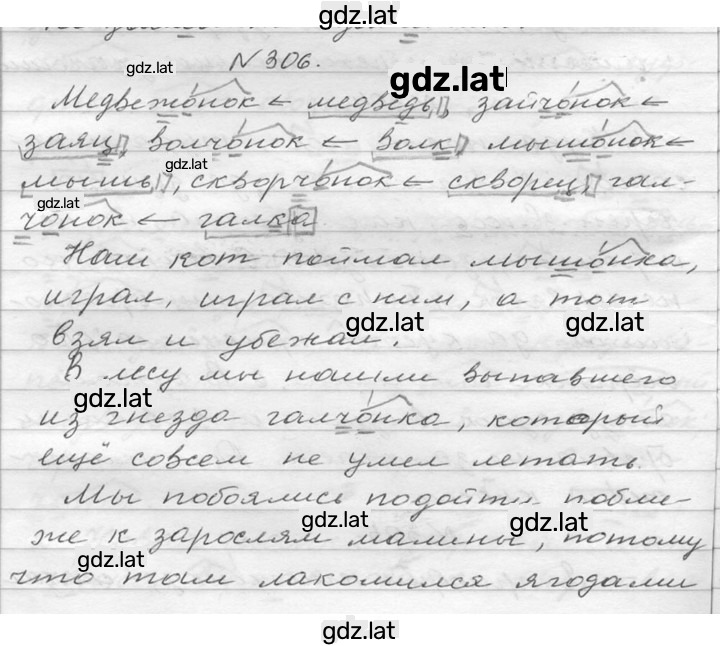 gdz.lat
N 306.
gdz.lat
gdz.lat
Медвежонок ← медведь, зайчонок ←
заяц, волчонок ← волк, мышонок ←
gdz.lat
мышь, скворчонок ← скворец, гал-
gdz.lat
чонок ← галка.
Наш кот поймал мышонка,
играл, играл с ним, а тот
gdz.lat gdz.lat
взял и убежал.
В лесу мы нашли выпавшего
gdz.lat
из гнезда галчонка, который
ещё совсем не умел летать.
Мы побоялись подойти побли-
gdz.lat gdz.lat
же к зарослям малины, потому
gdz.lat
что там лакомился ягодами
gdz.lat